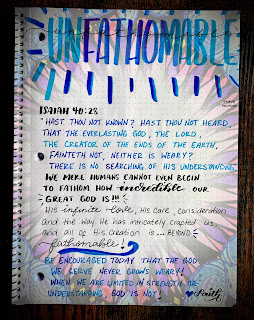 UNFATHOMABLE
ISAIAH 40:28
HAST THOU NOT KNOWN? HAST THOU NOT HEARD,
THAT THE EVERLASTING GOD, THE LORD,
THE CREATOR OF THE ENDS OF THE EARTH,
FAINTETH NOT, NEITHER IS WEARY?
THERE IS NO SEARCHING OF HIS UNDERSTANDING.
WE MERE HUMANS CANNOT EVEN BEGIN
TO FATHOM HOW incredible OUR
GREAT GOD IS!!!
HIS infinite love, HIS CARE, CONSIDERATION
AND THE WAY HE HAS INTRICATELY CRAFTED US
AND ALL OF HIS CREATION IS... BEYOND
fathomable!
BE ENCOURAGED TODAY THAT THE GOD
WE SERVE NEVER GROWS WEARY!!
WHEN WE ARE LIMITED IN STRENGTH OR
UNDERSTANDING, GOD IS NOT!